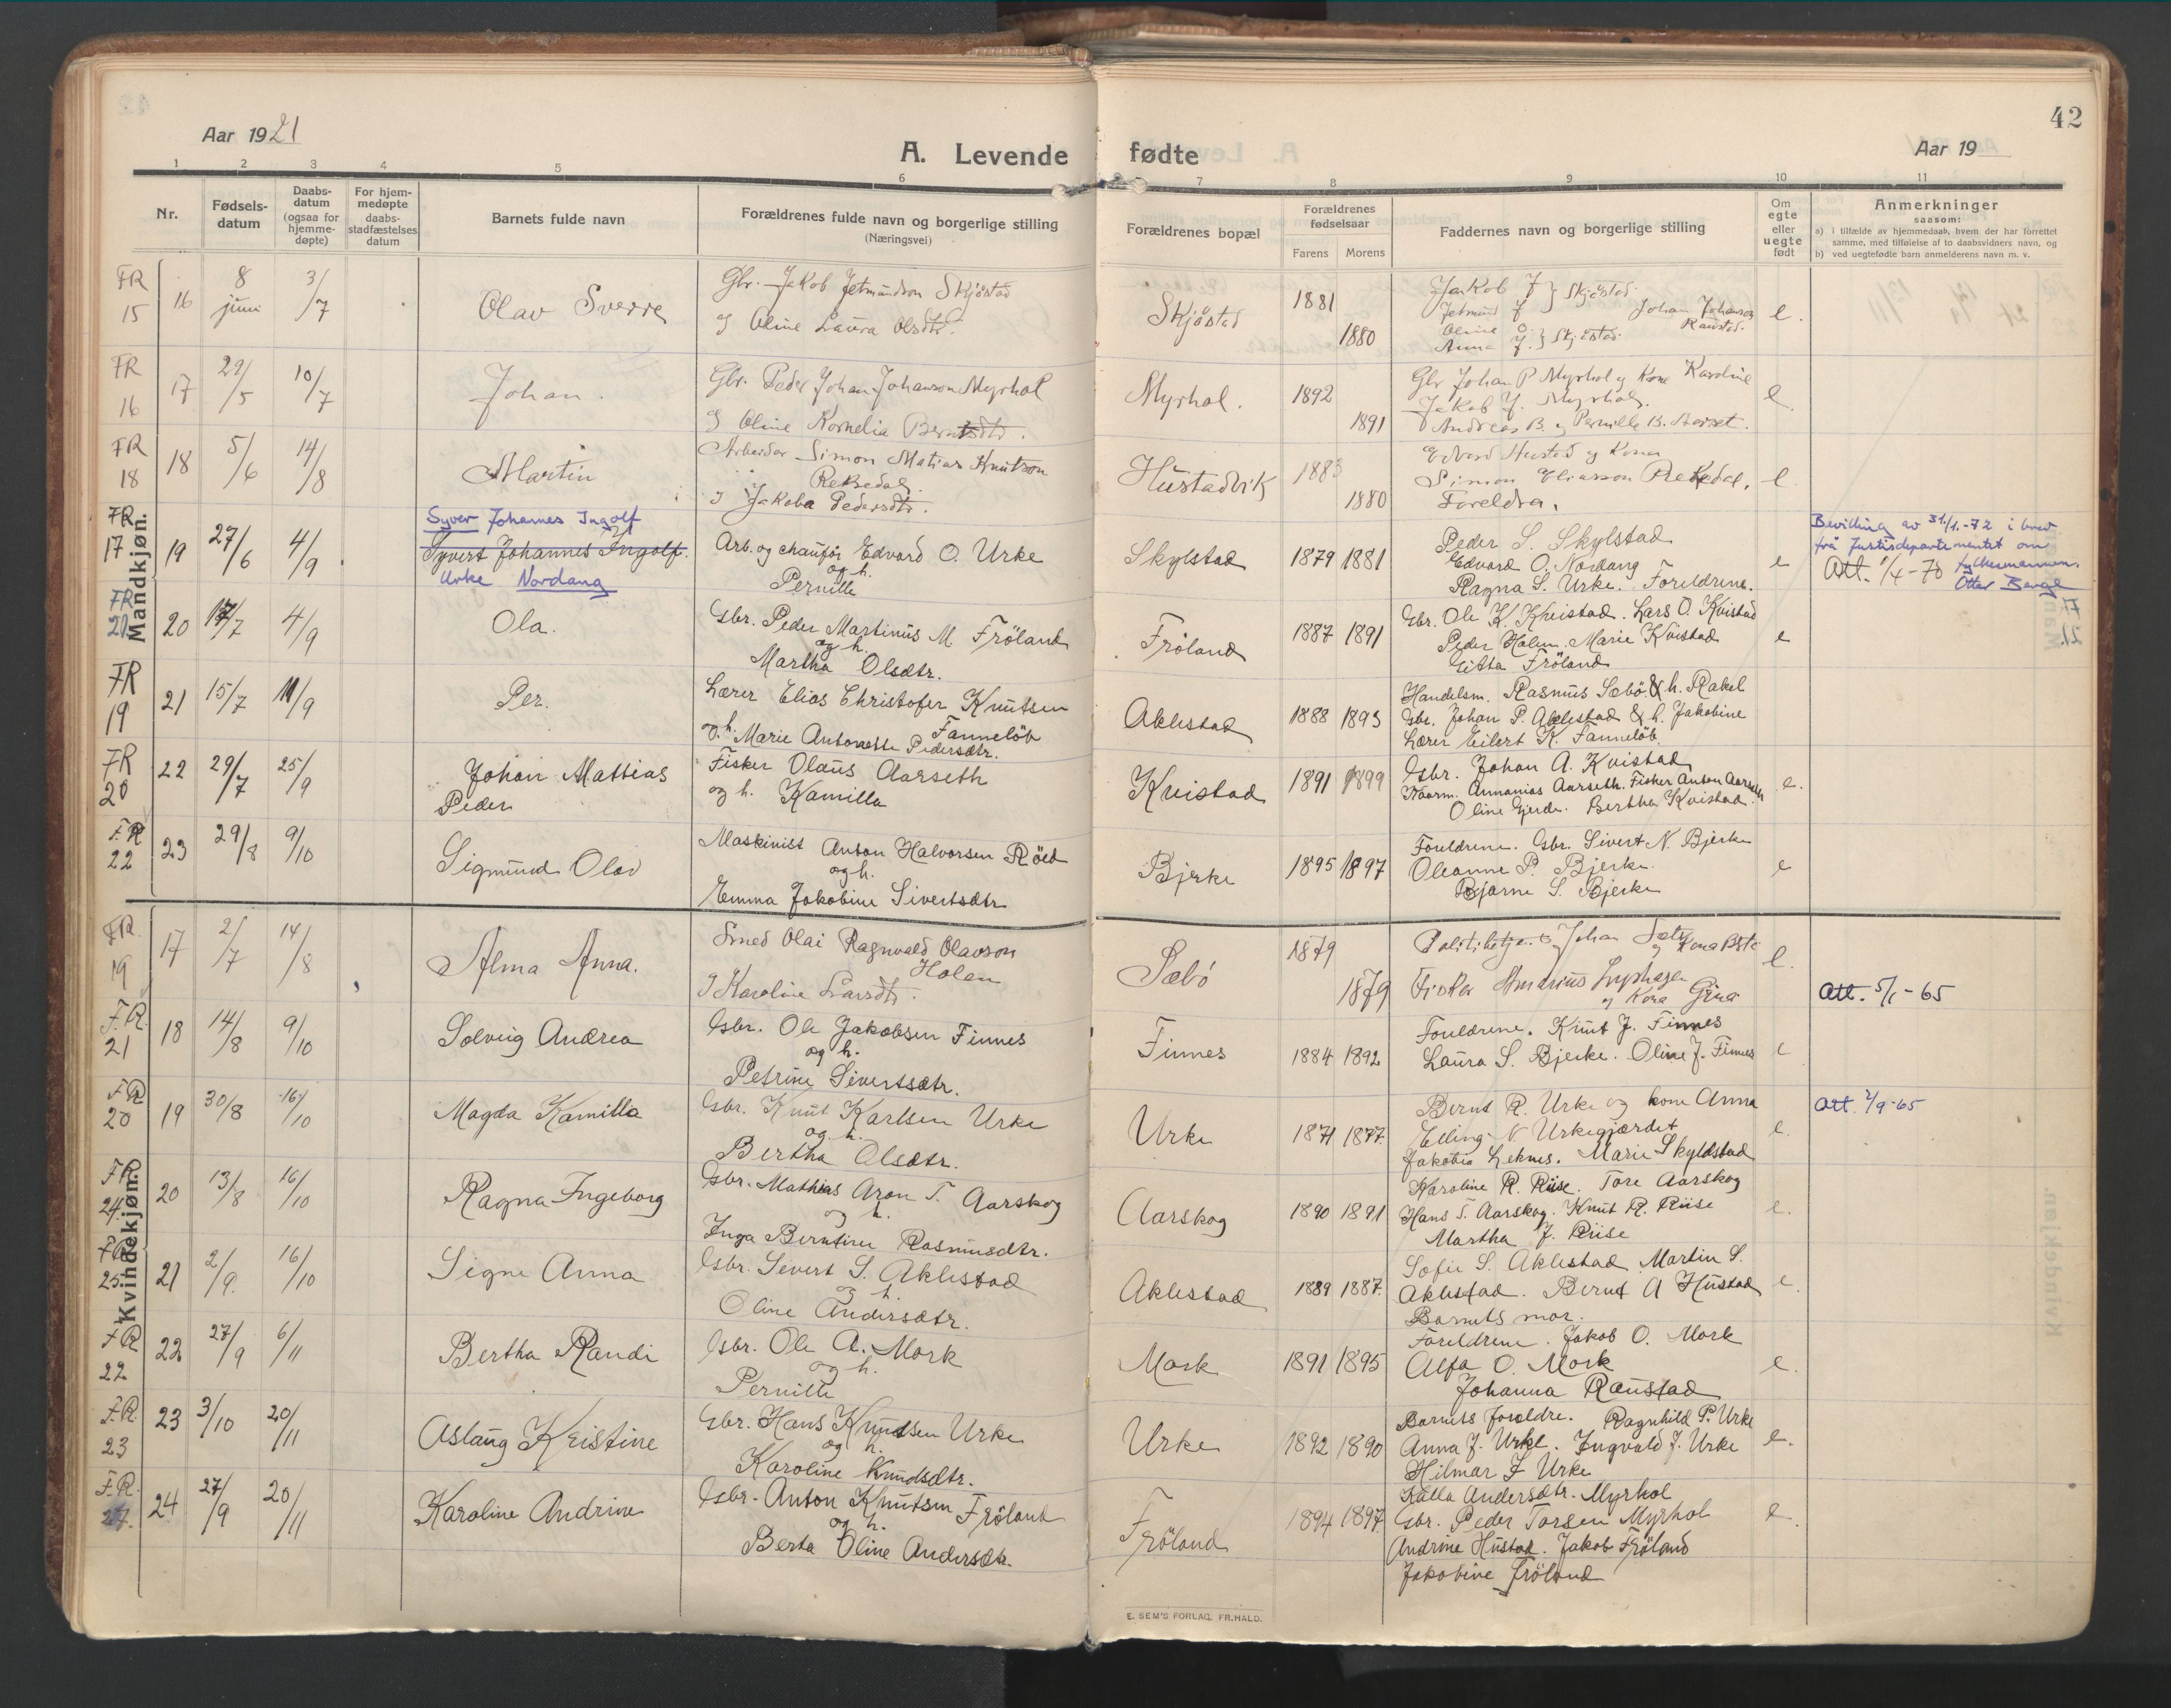 42
Aar 1921
A. Levende fødte
Aar 19
1 2 3 4 5 6 7 8 9 10 11
Nr.
Fødsels-
datum
Daabs-
datum
(ogsaa for
hjemme-
døpte)
For hjem-
medøpte
daabs-
stadfæstelses
datum
Barnets fulde navn
Forældrenes fulde navn og borgerlige stilling
(Næringsvei)
Forældrenes bopæl
Forældrenes
fødselsaar
Farens Morens
Faddernes navn og borgerlige stilling
Om
egte
eller
uegte
født
Anmerkninger
saasom:
a) i tilfælde av hjemmedaab, hvem der har forrettet
samme, med tilføielse af to daabsvidners navn, og
b) ved uegtefødte barn anmelderens navn m. v.
Mandkjøn.
FR 15 16 8 juni 3/7 Olav Sverre
Gbr. Jakob Jetmundson Skjåstad
Oline Laura Olsdtr.
Skjåstad 1881 1880
Jakob J Skjåstad
Jetmund J
Johan Johanson Raustad.
Oline O.
Anna J. Skjåstad
e.
FR 16 17 29/5 10/7 Johan.
Gbr. Peder Johan Johanson Myrhol
Oline Kornelia Berntsdtr.
Myrhol. 1892 1891
Gbr Johan P Myrhol og Kona Karoline
Jakob J. Myrhol.
Andreas B. og Pernille B. Aarset.
e
FR 18 18 5/6 14/8 Martin
Arbeidar Simon Matias Knutson
Rekkedal
Jakoba Pedersdtr.
Hustadvik 1883 1880
Edvard Hustad og Kona
Simon Eliasson Rekkedal.
Foreldra.
e
FR 17 19 27/6 4/9
Syver Johannes Ingolf
Syvert Johannes Ingolf.
Urke Nordang
Arb. og chaufør Edvard O. Urke
og h.
Pernille
Skylstad 1879 1881
Peder S. Skylstad
Edvard O. Nordang
Ragna S. Urke. Foreldrene.
e
Bevilling av 31/1.-72 i brev
frå Justisdepartementet om
fylkesmannen.
Att. 1/4-70
FR 21 20 17/7 4/9 Ola.
Gbr. Peder Martinus M. Fröland
og h.
Martha Olsdtr.
Fröland 1887 1891
Gbr. Ole K. Kvistad. Lars O. Kvistad
Peder Holen. Marie Kvistad
Gitta Fröland
e
FR 19 21 15/7 11/9 Per.
Lærer Elias Christofer Knutsen
Fannelöb
og h. Marie Antonette Pedersdtr.
Aklestad 1888 1893
Handelsm. Rasmus Sæbö & h. Rakel
Gbr. Johan P. Aklestad & h. Jakobine
Lærer Eilert K. Fannelöb.
FR 20 22 29/7 25/9 Johan Mattias
Peder
Fisker Olaus Aarseth
og h. Kamilla
Kvistad 1891 1899
Gbr. Johan A. Kvistad
Ananias Aarseth. Fisker Anton Aarseth
Oline Gjerde. Bertha Kvistad.
e.
F.R 22 23 29/8 9/10 Sigmund Olav
Maskinist Anton Halvorsen Röed
og h.
Emma Jakobine Sivertsdtr
Bjerke 1895 1897
Foreldrene. Gbr. Sivert N. Bjerke
Oleanne P. Bjerke.
Bjarne S. Bjerke
e
Kvindekjøn.
FR. 19 17 2/7 14/8 Alma Anna.
Smed Olai Ragnvald Olavson
Holen
Karoline Larsdtr.
Sæbö 1879 1879
Johan Sætre
Fisker
og Kona Gina
e.
Att. 5/1-65
F.R. 21 18 14/8 9/10 Solveig Andrea
Gbr. Ole Jakobsen Finnes
og h.
Petrine Sivertsdtr.
Finnes 1884 1892
Foreldrene. Knut J. Finnes
Laura S. Bjerke. Oline J. Finnes
e
FR 20 19 30/8 16/10 Magda Kamilla
Gbr. Knut Karlsen Urke
og h.
Bertha Olsdtr.
Urke 1871 1877.
Bernt R. Urke og kone Anna
Elling N Urkegjærdet
Jakobia Leknes. Marie Skyldstad
e.
Att. 7/9-65
FR. 24. 20 13/8 16/10 Ragna Ingeborg
Gbr. Mathias Aron T. Aarskog
og h.
Inga Berntine Rasmusdtr.
Aarskog 1890 1891
Karoline R. Riise. Tore Aarskog
Hans T. Aarskog. Knut R. Riise
Martha J. Riise
e.
FR. 25. 21 2/9. 16/10 Signe Anna
Gbr. Severt S. Aklestad
og h.
Oline Andersdtr.
Aklestad 1889 1887.
Sofie S. Aklestad Martin S.
Aklestad. Bernt A Hustad
Barnets mor.
e.
F.R 22 22 27/9 6/11 Bertha Randi
Gbr. Ole A. Mork
og h.
Pernille
Mork 1891 1895
Foreldrene. Jakob O. Mork
Alfa O. Mork
Johanna Raustad
e.
F.R. 23 23 3/10 20/11 Aslaug Kristine
Gbr. Hans Knudsen Urke
og h.
Karoline Knudsdtr.
Urke 1892 1890
Barnets foreldre. Ragnhild P. Urke
Anna J. Urke. Ingvald J. Urke
Hilmar J Urke
e.
F.R. 27. 24 27/9 20/11 Karoline Andrine
Gbr. Anton Knutsen Fröland
og h.
Berta Oline Andersdtr.
Fröland 1894 1897
Kalla Andersdtr. Myrhol
Gbr. Peder Torsen Myrhol
Andrine Hustad. Jakob Fröland
Jakobine Fröland
e.
E. SEM'S FORLAG, FR.HALD.